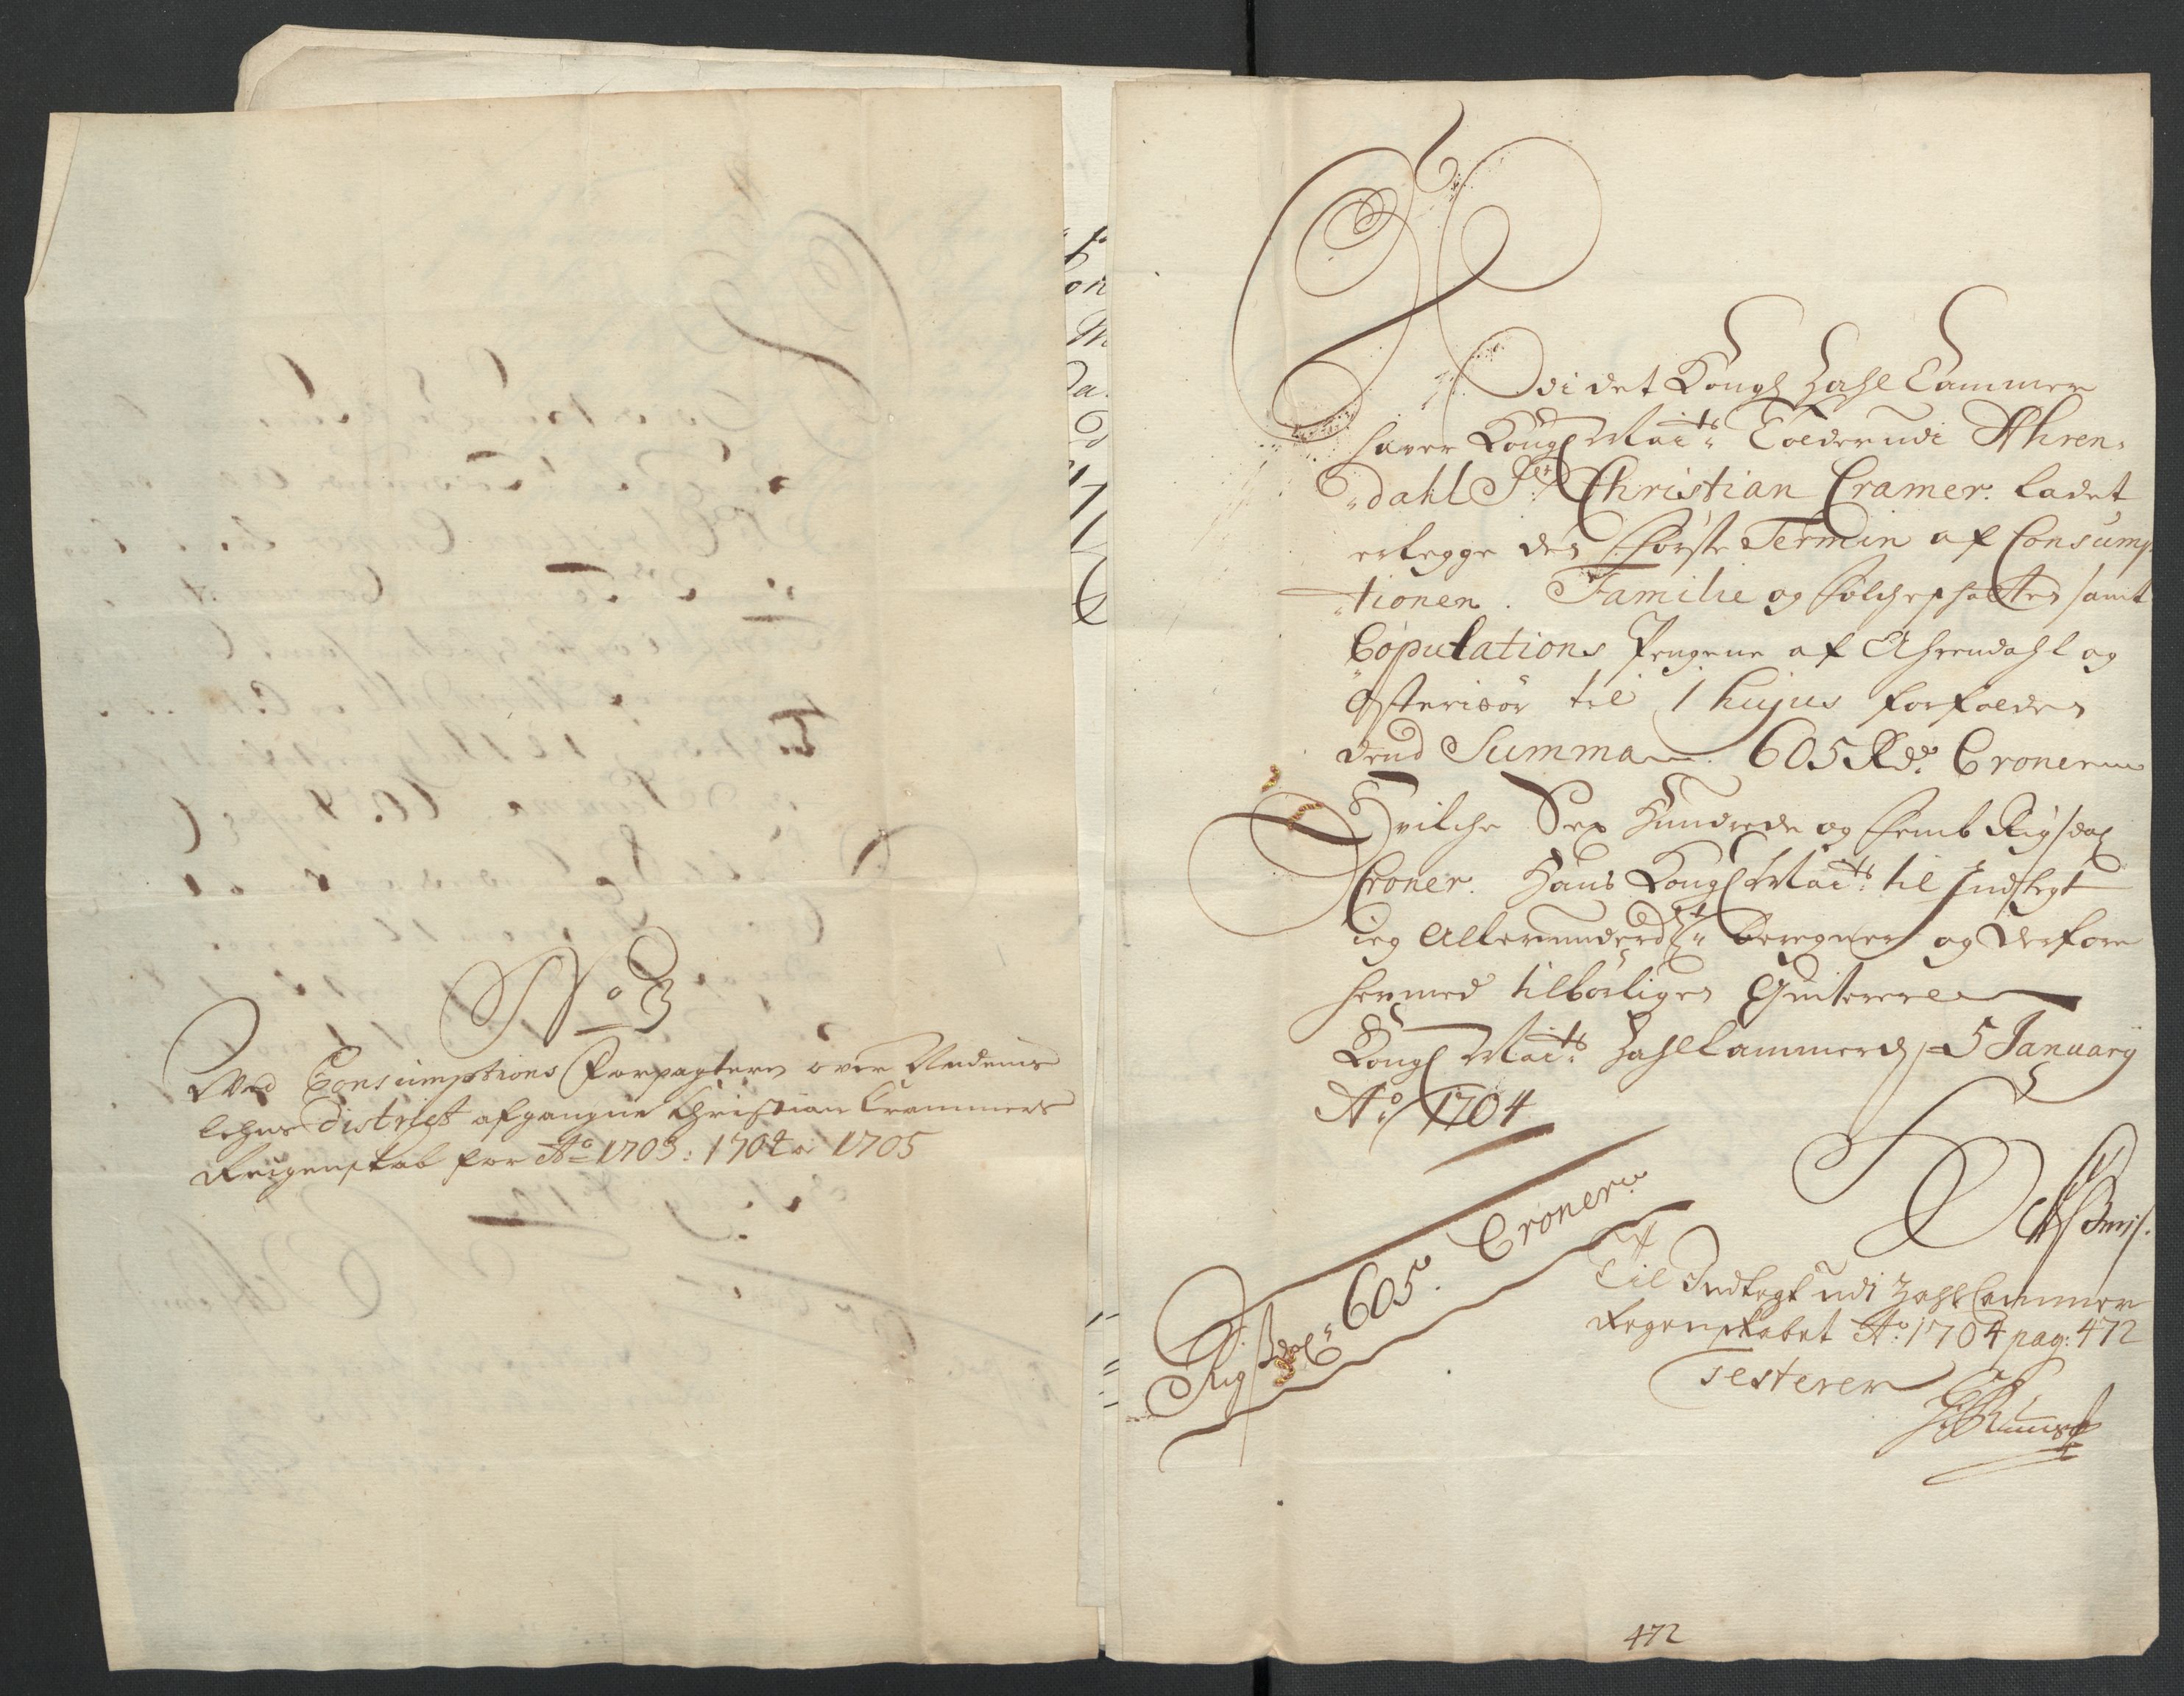 No 3
Ved Consumptions Forpagteren over Nedenes
lehns District afgangne Christian Crammers
Reigenskab for Ao 1703: 1704 og 1705
Udi det Kongl Zahl Cammer
hafver Kongl Maits Tolder udi Ahren,
„dahl Sr Christian Cramer. ladet
erlegge den Første Termin af Consump
„tionen. Familie og Folcheskatten samt
Copulations Pengene af Ahrendahl og
Østerisør til 1 hujus forfalden
dend Summa 605 Rdr Croner
Hvilche Sex Hundrede og Femb Rigsdal
Croner. Hans Kongl Maits til Indtegt
ieg Allerunderdt beregner og derfore
hermed tilbørligen Qviterer
Kongl Maits Zahlkammerd 5 January
Ao 1704
Rigsdal 605. Croner
Til Indtegt udi Zahlcammer
Regenskabet Ao: 1704 pag: 472
Testerer
472